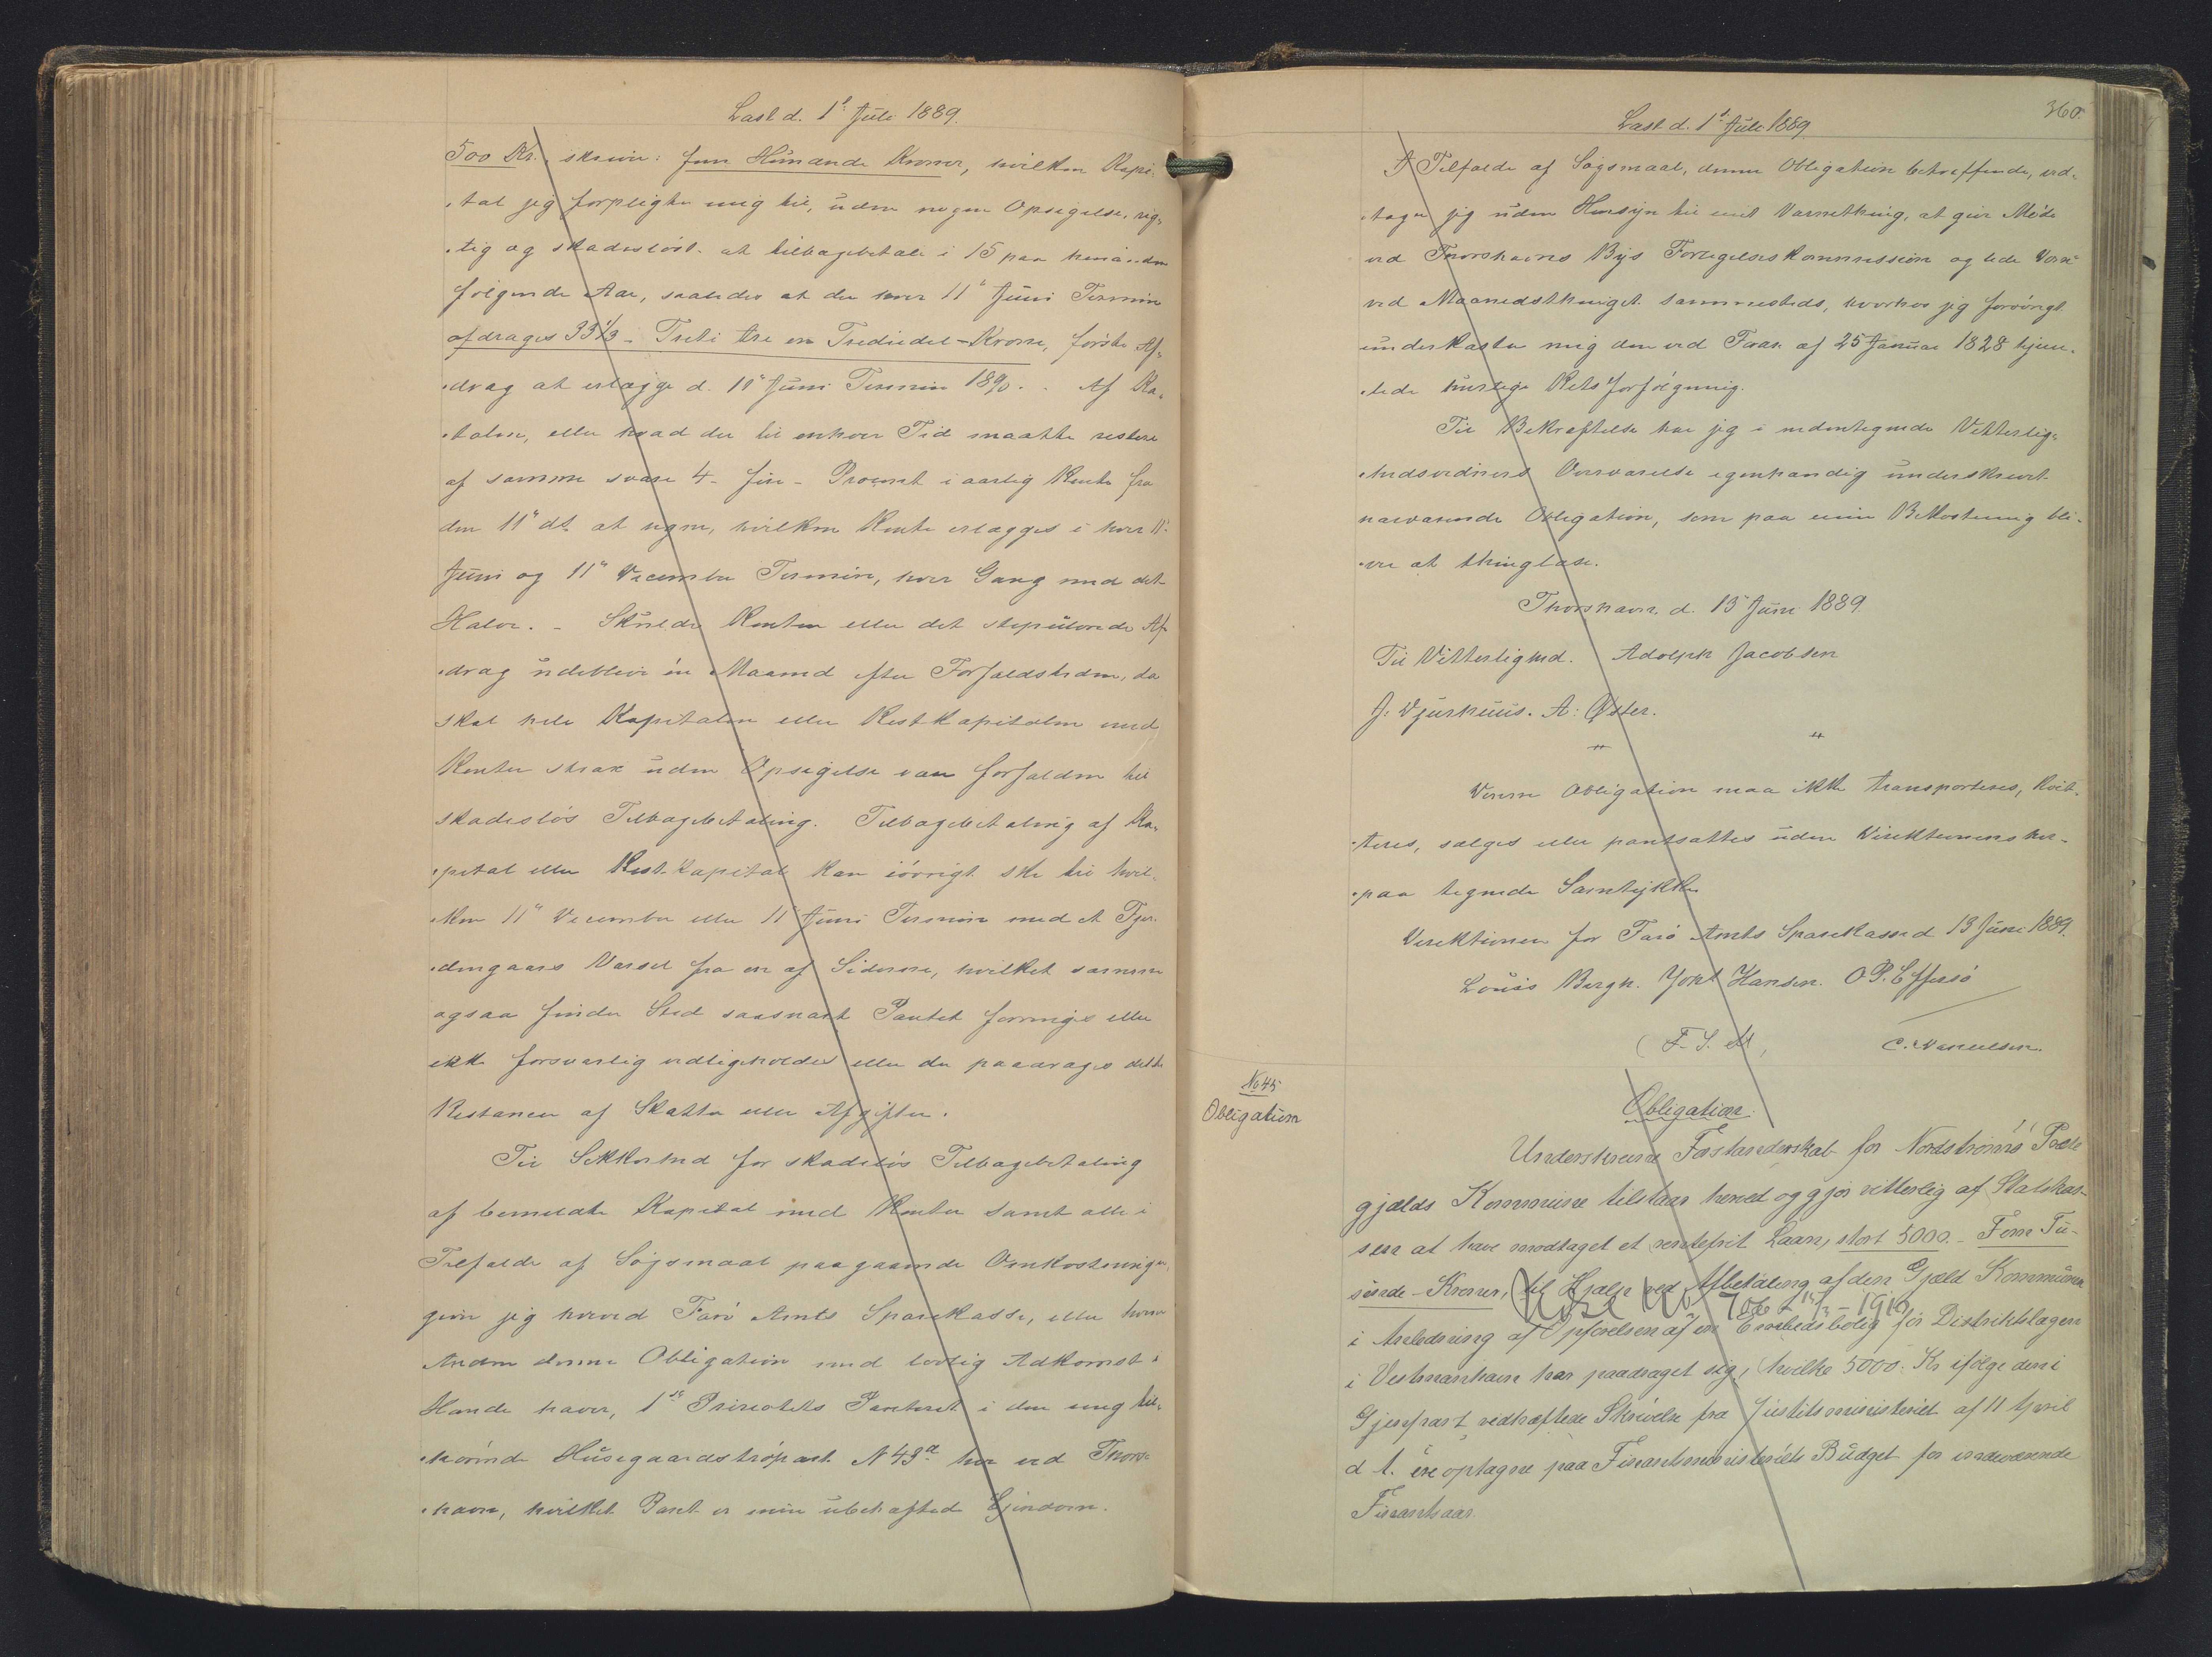 Læst d. 1ste Juli 1889.
500 Kr., skriver: Fem Hundrede Kroner, hvilken Kapi-
tal jeg forpligter mig til, uden nogen Opsigelse, rig-
tig og skadesløst at tilbagebetale i 15 paa hinanden
følgende Aar, saaledes at der hver 11" Juni Termin
afdrages 33 1/3 - Treti tre en Trediedel - Krone, første Af-
drag at erlægge d. 11" Juni Termin 1890. Af Ka-
talen, eller hvad der til enhver Tid maatte restere
af samme svare 4 - fire - Procent i aarlig Rente fra
den 11" dt. at regne, hvilken Rente erlægges i hver 11"
Juni og 11" December Termin, hver Gang med det
Halve. - Skulde Renten eller det stipulerede Af-
drag udeblive én Maaned efter Forfaldstiden, da
skal hele Kapitalen eller Restkapitalen med
Renter strax uden Opsigelse være forfalden til
skadesløs Tilbagebetaling. Tilbagebetaling af Ka-
pital eller Rest-Kapital kan iøvrigt ske til hvil-
ken 11" December eller 11" Juni Termin med et Fjer-
dingaars Varsel fra en af Siderne, hvilket samme
ogsaa finder Sted saasnart Pantet forringes eller
ikke forsvarlig vedligeholdes eller der paadrages dette
Restancer af Skatter eller Afgifter.
Til Sikkerhed for skadesløs Tilbagebetaling
af bemeldte Kapital med Renter samt alle i
Tilfælde af Søgsmaal paagaaende Omkostninger,
giver jeg herved Færø Amts Sparekasse, eller hvem
Anden denne Obligation med lovlig Adkomst i
Hænde haver, 1ste Prioritets Panteret i den mig til-
hørende Husegaardstrøpart N 43a her ved Thors-
havn, hvilket Pant er min ubehæftede Ejendom.
Læst d. 1ste Juli 1889.
360.
I Tilfælde af Søgsmaal, denne Obligation betræffende, ved-
tager jeg uden Hensyn til mit Værnething, at give Møde
ved Thorshavns Bys Forligelseskommission og lide Dom
ved Maanedsthinget sammesteds, hvorhos jeg forøvrigt
underkaster mig den ved Foran. af 25 Januar 1828 hjem-
lede hurtige Retsforfølgning.
Til Bekræftelse har jeg i nedentegnede Vitterlig-
hedsvidners Overværelse egenhændig underskrevet
nærværende Obligation, som paa min Bekostning bli-
ver at thinglæse.
Thorshavn, d. 13 Juni 1889.
Til Vitterlighed. Adolph Jacobsen
J. Djurhuus. A: Øster.
" "
Denne Obligation maa ikke transporteres, kvit-
teres, sælges eller pantsættes uden Direktionens her-
paa tegnede Samtykke
Direktionen for Færø Amts Sparekasse d 13 Juni 1889.
Louis Bergh. Joh Hansen. O.P. Effersø
(F. S. M, C. Danielsen.
No 45
Obligation
Obligation.
Underskrevne Forstanderskab for Nordstrømø Præste-
gjælds Kommune tilstaar herved og gjør vitterlig af Statskas-
sen at have modtaget et rentefrit Laan, stort 5000. - Fem Tu-
sinde - Kroner, til Hjælp ved Afbetaling af den Gjæld Kommunen
706 - 15/3 - 1910
i Anledning af Opførelsen af en Embedsbolig for Distriktslægen
i Vestmanhavn har paadraget sig, hvilke 5000. Kr ifølge den i
Gjenpart vedhæftede Skrivelse fra Justitsministeriet af 11 April
d A. ere optagne paa Finantsministeriets Budget for indeværende
Finantsaar.